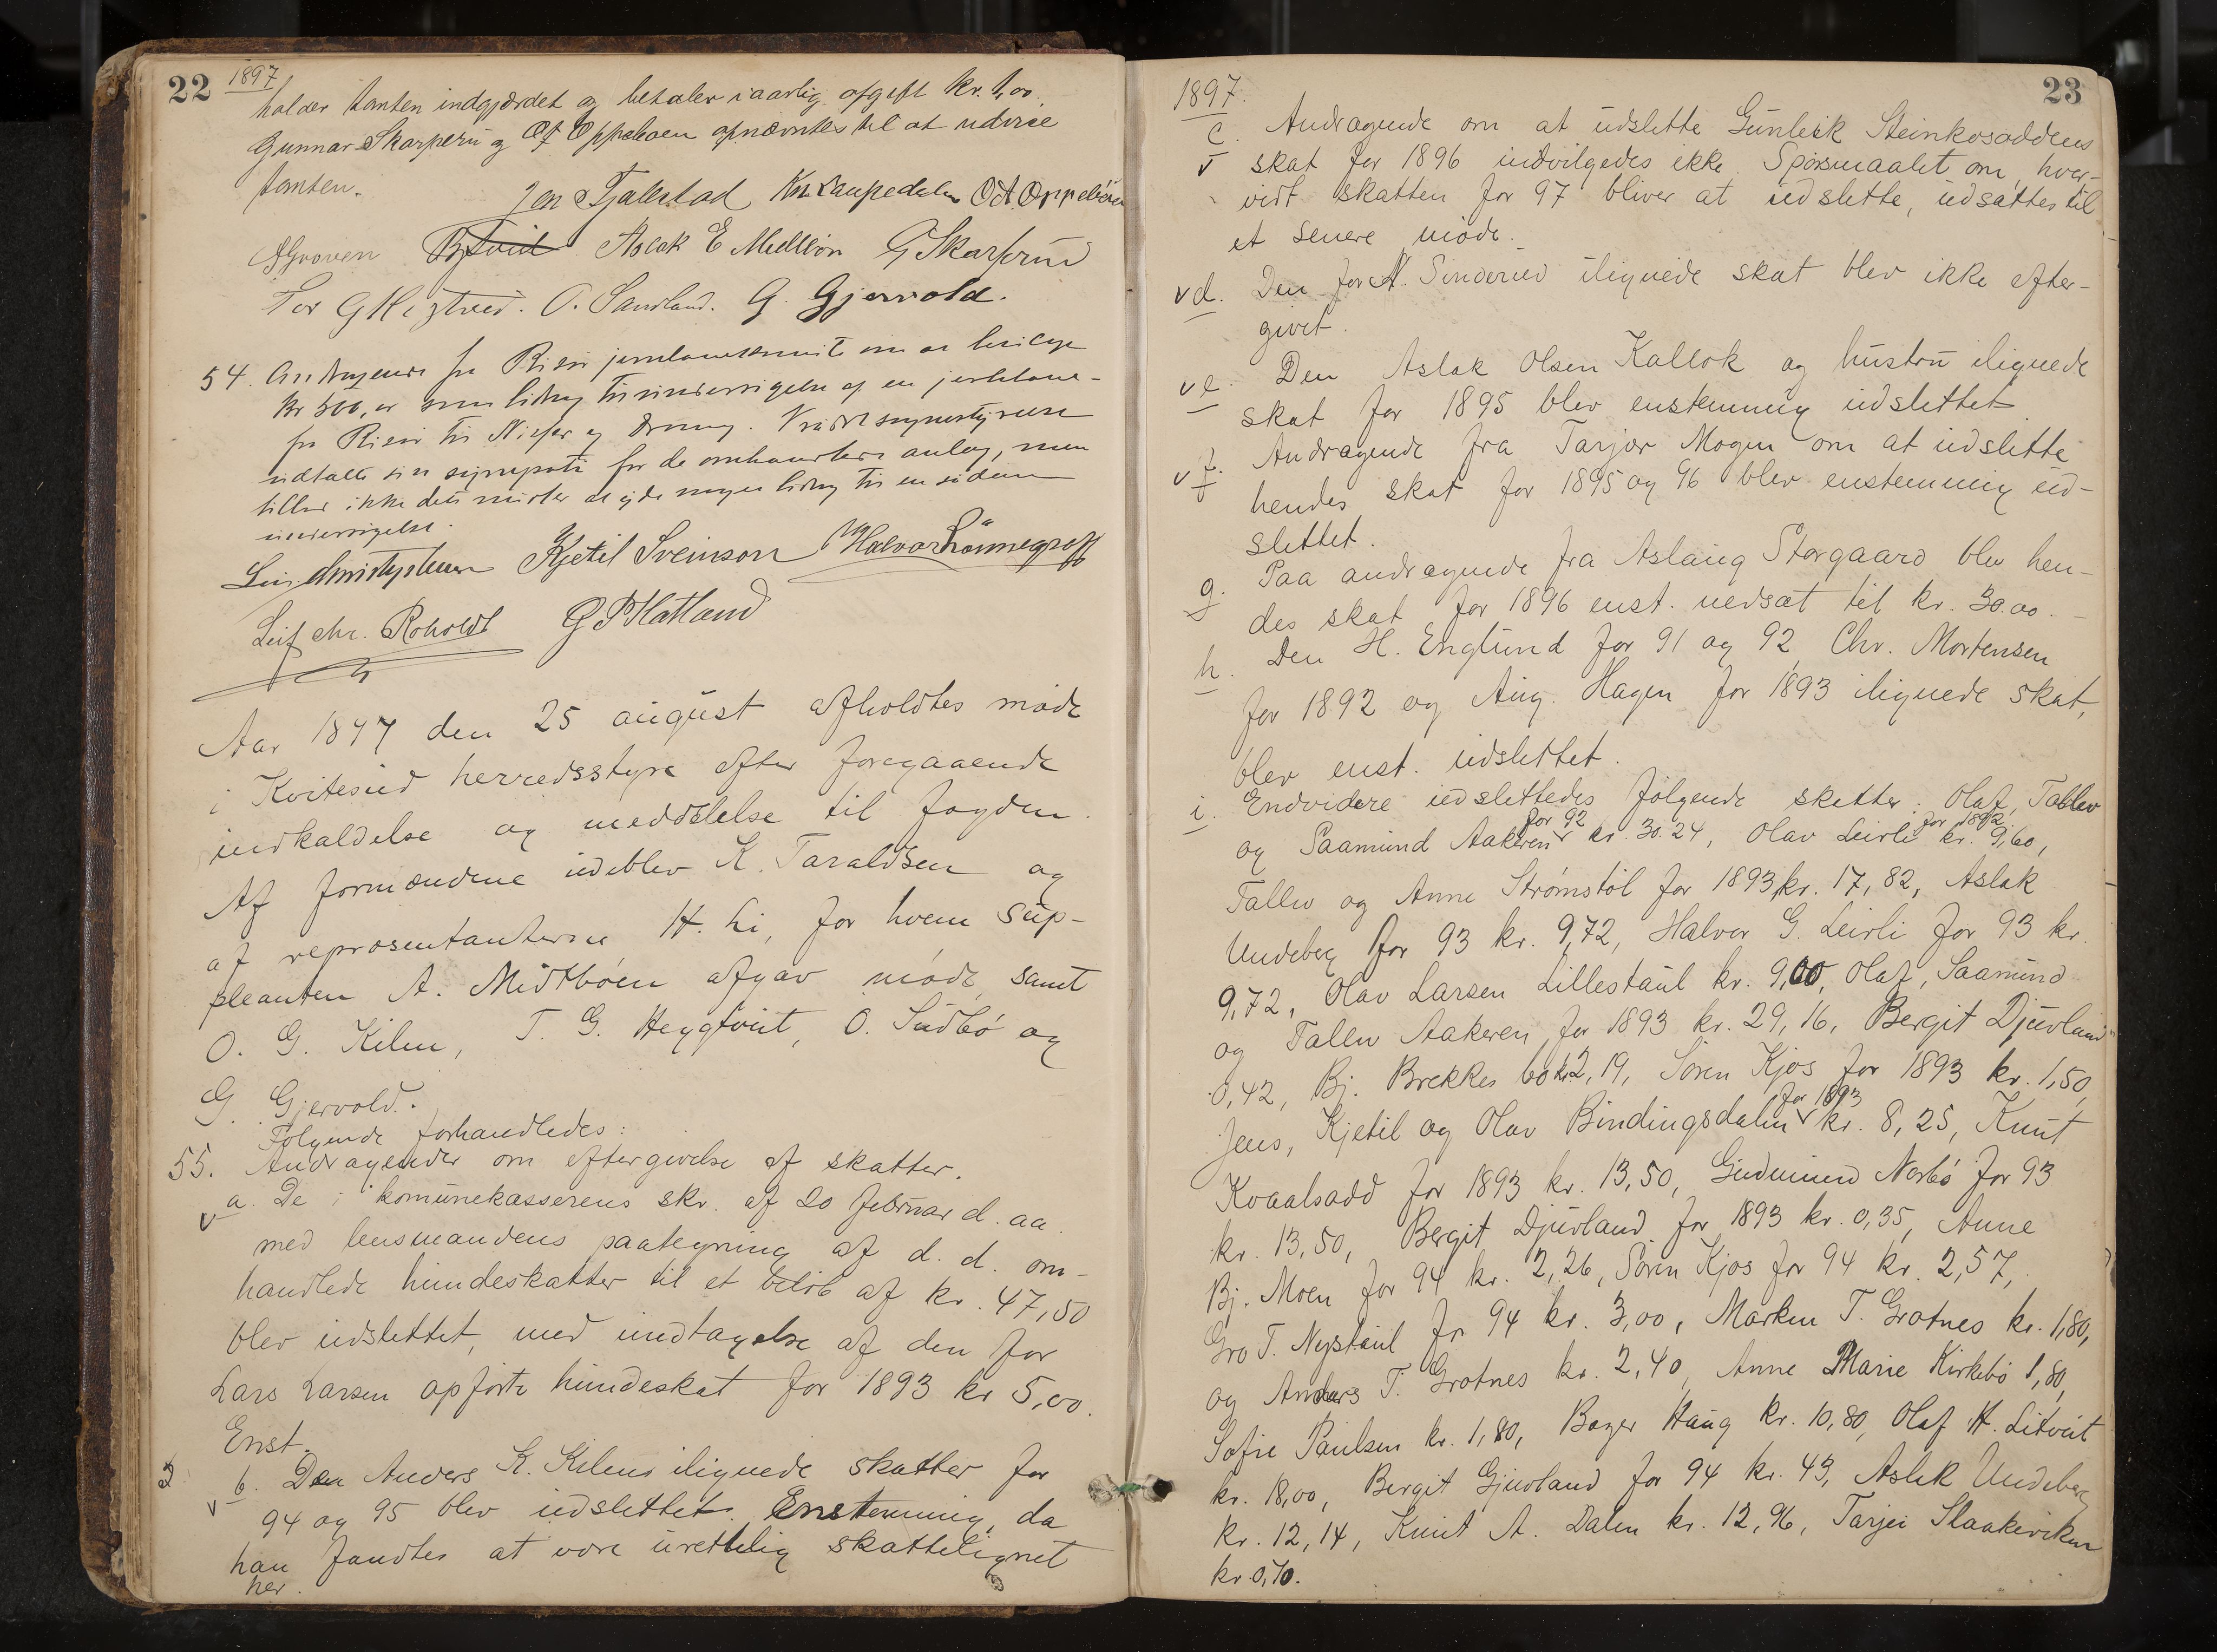 22 1897
holder tomten indgjærdet og betaler i aarlig afgift kr. 1,00.
Gunnar Skarperu og O A Oppebøen opnævntes til at udvise
tomten.
Jon Tjalstad Kn. Laupedalen O A Oppebøen
Groven Aslak E Midtbøn G Skarperud
Tor G O. Sandland. G. Gjervold.
54. Andragende fra Risør om at bevilge
kr 300, som bidrag til undersøgelse af en jernbane-
fra Risør til Nisser og . styret
udtalte sin sympati for de omhandlede anlæg, men
ikke at yde nogen bidrag til en sådan
undersøgelse.
Kjetil Sveinson Halvor Lønnegraff
Leif Chr. Roholdt G P Hatland
Aar 1897 den 25 august afholdtes møde
i Kviteseid herredsstyre efter foregaaende
indkaldelse og meddelelse til fogden.
Af formændene udeblev K. Taraldsen og
af repræsentanterne H. Li, for hvem sup-
pleanten A. Midtbøen afgav møde, samt
O. G. Kilen, T. G. Heggtveit, O. Sudbø og
G Gjervold.
Følgende forhandledes:
55. Andragender om eftergivelse af skatter.
a. De i komunekasserens skr. af 20 februar d. aa.
med lensmandens paategning af d. d. om-
handlede hundeskatter til et beløb af kr. 47,50
blev udslettet, med undtagelse af den for
Lars Larsen opførte hundeskat for 1893 kr 5,00.
Enst.
b. Den Anders K. Kilens ilignede skatter for
94 og 95 blev udslettet. Enstemmig, da
han fandtes at være urettelig skattelignet
her.
23
1897.
c. Andragende om at udslette Gunleik Steinkosaddens
skat for 1896 indvilgedes ikke. Spørsmaalet om, hver-
vidt skatten for 97 bliver at udslette, udsættes til
et senere møde.
d. Den for A. Sunderud ilignede skat blev ikke efter-
givet.
e. Den Aslak Olsen Kallok og hustru ilignede
skat for 1895 blev enstemmig udslettet.
f. Andragende fra Tarjer Mogen om at udslette
hendes skat for 1895 og 96 blev enstemmig ud-
slettet.
g. Paa andragende fra Aslaug Storgaard blev hen-
des skat for 1896 enst. nedsat til kr. 30.00.-
h. Den H. Englund for 91 og 92, Chr. Mortensen
for 1892 og Aug. Hagen for 1893 ilignede skat,
blev enst. udslettet.
i. Endvidere udslettedes følgende skatter: Olaf, Tallev
og Saamund Aakeren for 92 kr. 30.24, Olav Leirli for 1892 kr. 9,60,
Tallev og Anne Strømstøl for 1893 kr. 17,82, Aslak
Undeberg for 93 kr. 9,72, Halvor G. Leirli for 93 kr.
9,72, Olav Larsen Lillestaul kr. 9,00, Olaf, Saamund
og Tallev Aakeren for 1893 kr. 29,16, Bergit Djuvland
0,42, Bj. Brekkes bo kr 2,19, Søren Kjos for 1893 kr. 1,50,
Jens, Kjetil og Olav Bindingsdalen for 1893 kr. 8,25, Knut
Kvaalsodd for 1893 kr. 13,50, Gudmund Norbø for 93
kr. 13,50, Bergit Djuvland for 1893 kr. 0,35, Anne
Bj. Moen for 94 kr. 2,26, Søren Kjos for 94 kr. 2,57,
Gro T. Nystaul for 94 kr. 3,00, Marken T. Grotnes kr. 1,80,
og Anders T. Grotnes kr. 2,40, Anne Marie Kirkebø 1,80,
Sofie Paulsen kr. 1,80, Børger Haug kr. 10,80, Olaf H. Litveit
kr. 18,00, Bergit Gjuvland for 94 kr. 43, Aslak Undeberg
kr. 12,14, Knut A. Dalen kr. 12,96, Tarjei Slaakeviken
kr. 0,70.